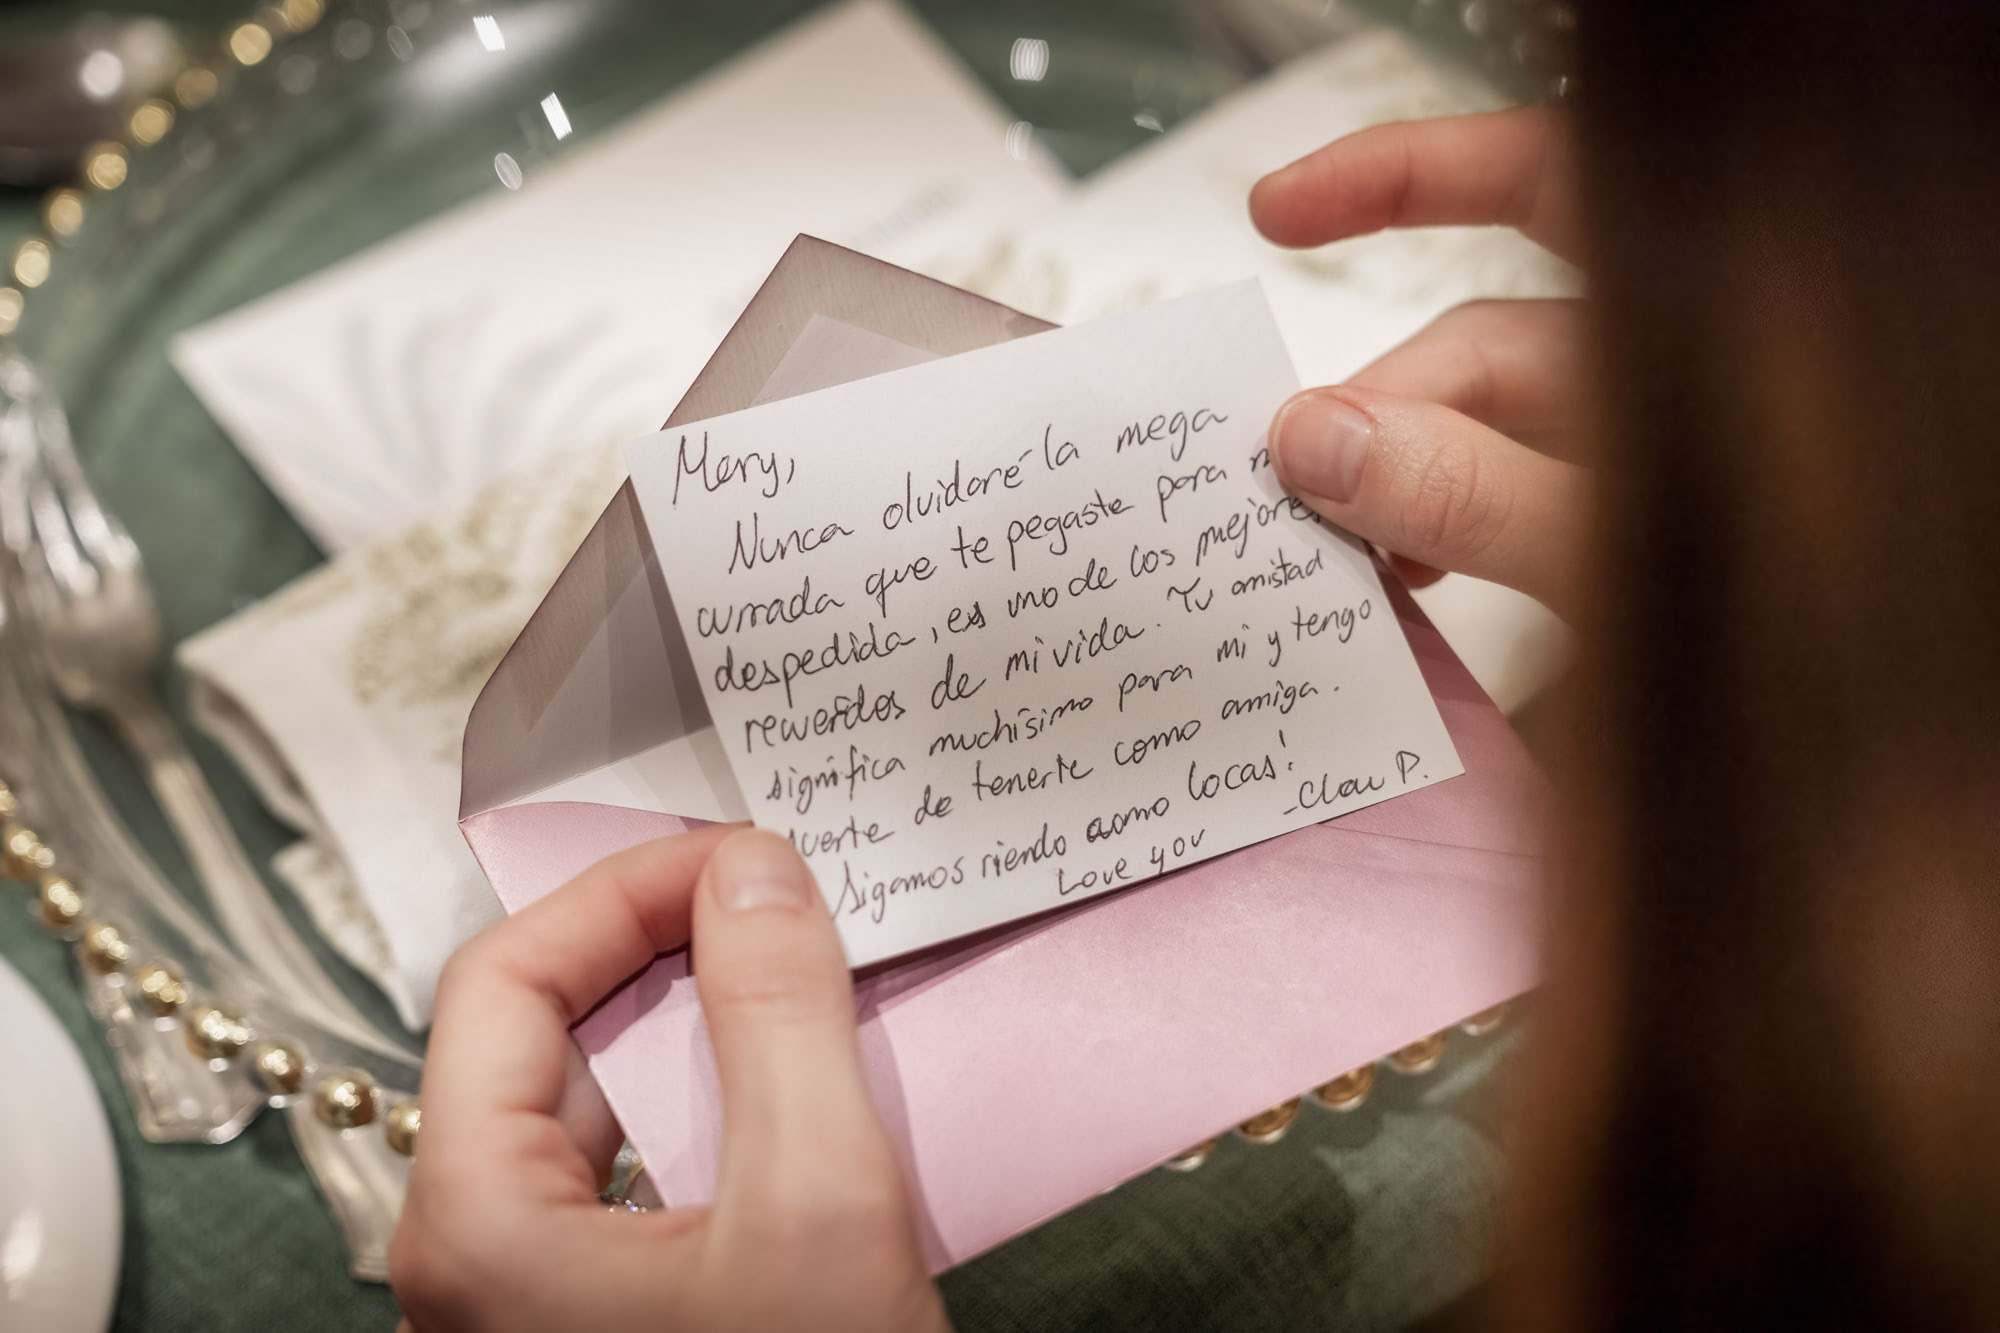 Mery,
Nunca olvidaré la mega
currada que te pegaste para
despedida, es uno de los mejores
recuerdos de mi vida. Tu amistad
significa muchísimo para mi y tengo
suerte de tenerte como amiga.
Sigamos riendo como locas!
Love you
-Clau P.